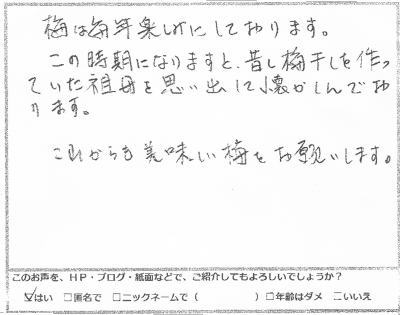 梅は毎年楽しみにしております。
この時期になりますと、昔し梅干しを作っ
ていた祖母を思い出して懐かしんでお
ります。
これからも美味しい梅をお願いします。
このお声を、HP・ブログ・紙面などで、ご紹介してもよろしいでしょうか？
☑はい □匿名で □ニックネームで（ ）□年齢はダメ □いいえ